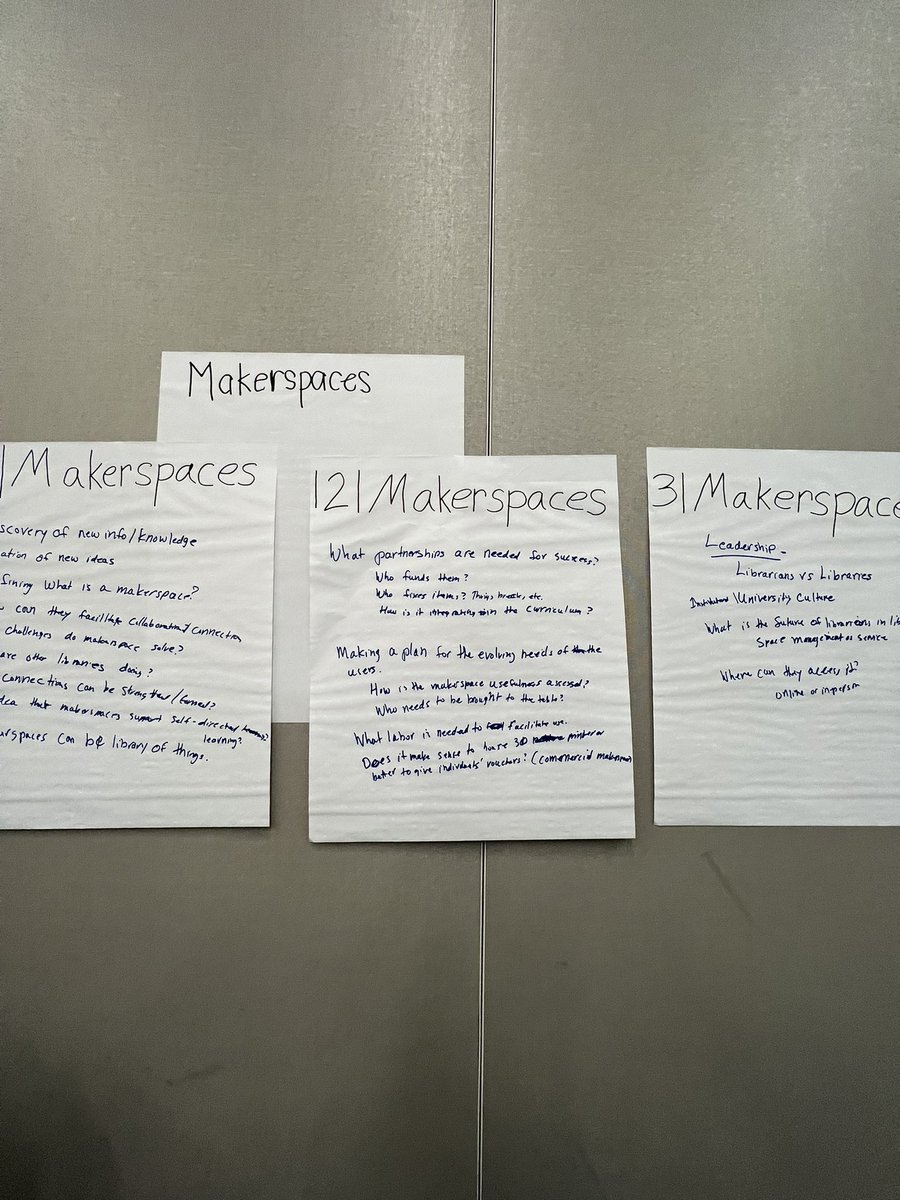 Makerspaces
| Makerspaces
scovery of new info/knowledge
ation of new ideas
fining What is a makerspace?
can they facilitate Collaboration/Connection
challenges do makerspace solve?
are other libraries doing?
Connections can be strengthen/formed?
dea that makerspaces support self-directed
learning?
rspaces can be library of things.
|2| Makerspaces
What partnerships are needed for success?
Who funds them?
Who fixes items? Things break, etc.
How is it the curriculum?
Making a plan for the evolving needs of the
users.
How is the makerspace usefulness assessed?
Who needs to be brought to the table?
What labor is needed to facilitate use.
Does it make sense to house 3D printer or
better to give individuals' vouchers? (commercial
3| Makerspace
Leadership -
Librarians vs Libraries
/University Culture
What is the future of librarians in lib
Space management as service
Where can they access it?
online or inperson